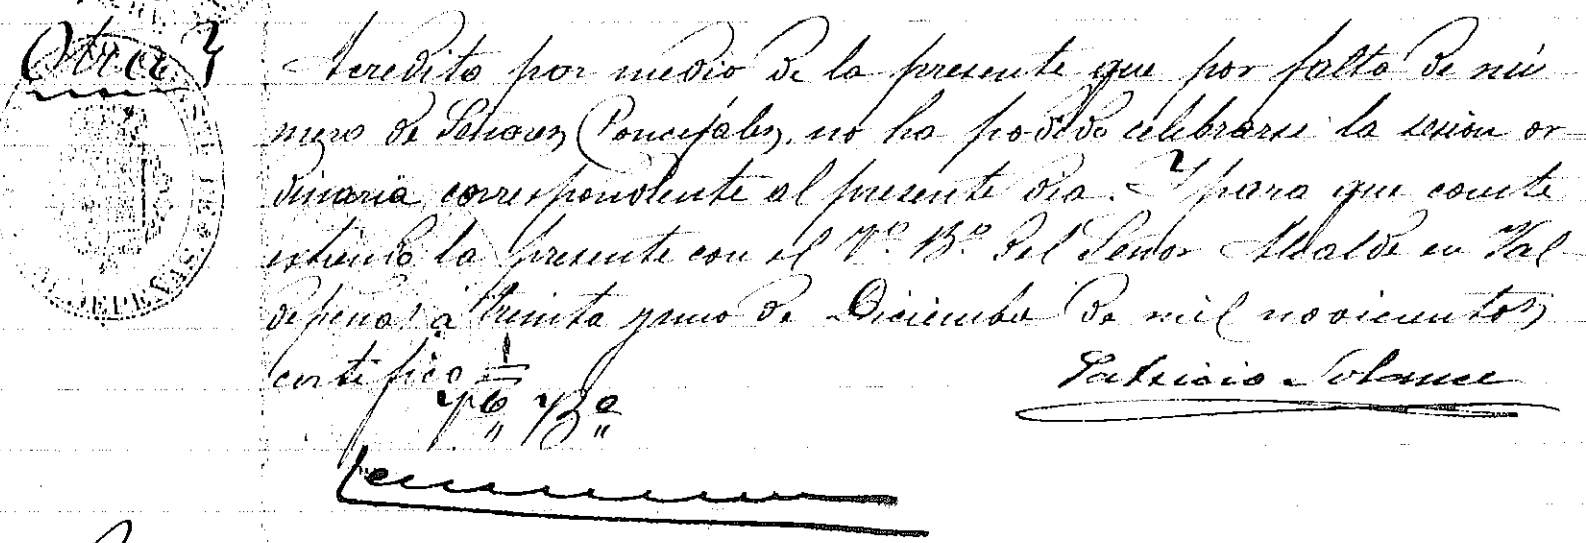 Otra
Acredito por medio de la presente que por falta de nú
mero de Señores Concejales, no ha podido celebrarse la sesion or
dinaria correspondiente al presente dia. Y para que conste
estiendo la presente con el Vº Bº del Señor Alcalde en Val
depeñas á treinta y uno de Diciembre de mil novecientos
certifico
Vº Bº
Patricio